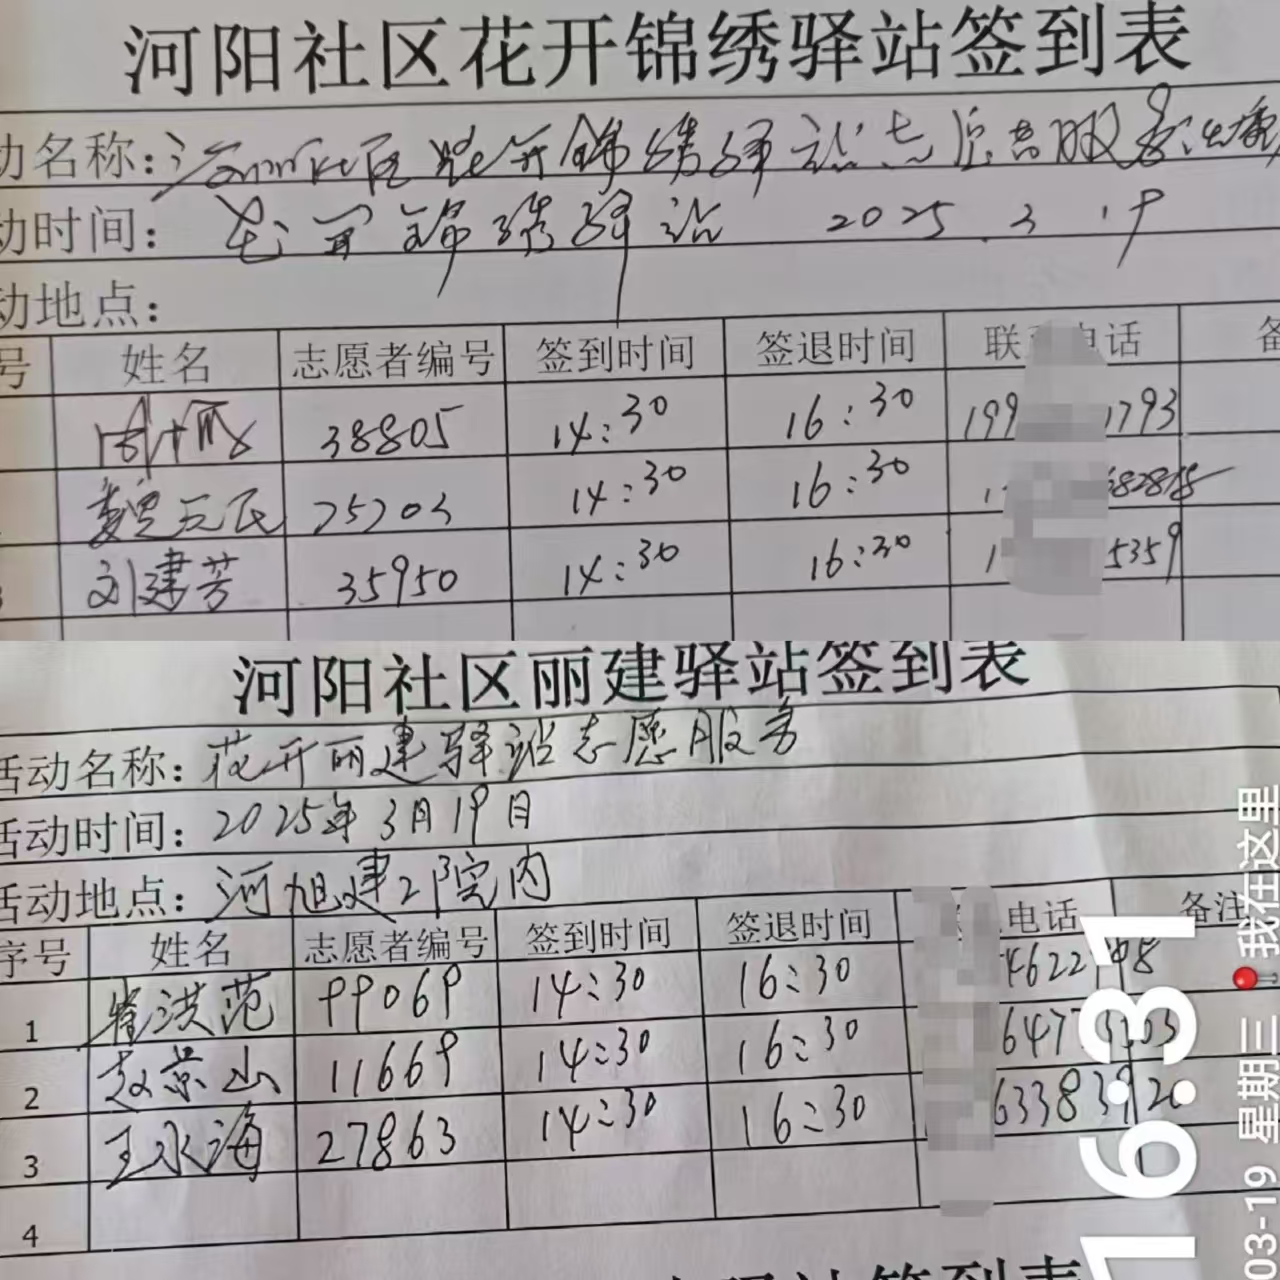 河阳社区花开锦绣驿站签到表
动名称: 河阳社区花开锦绣驿站志愿者服务活动
动时间: 花开锦绣驿站 2025.3.19
动地点:
号 姓名 志愿者编号 签到时间 签退时间 联 电话 备
38805 14:30 16:30 199 1793
魏玉民 25203 14:30 16:30 1 682815
3 刘建芳 35950 14:30 16:30 1 5359
河阳社区丽建驿站签到表
活动名称: 花开丽建驿站志愿服务
活动时间: 2025年3月19日
活动地点: 河旭建2院内
序号 姓名 志愿者编号 签到时间 签退时间 电话 备注
1 崔洪范 99069 14:30 16:30
2 赵景山 11669 14:30 16:30
3 王永海 27863 14:30 16:30
4
签到表
16:31
03-19 星期三 我在这里